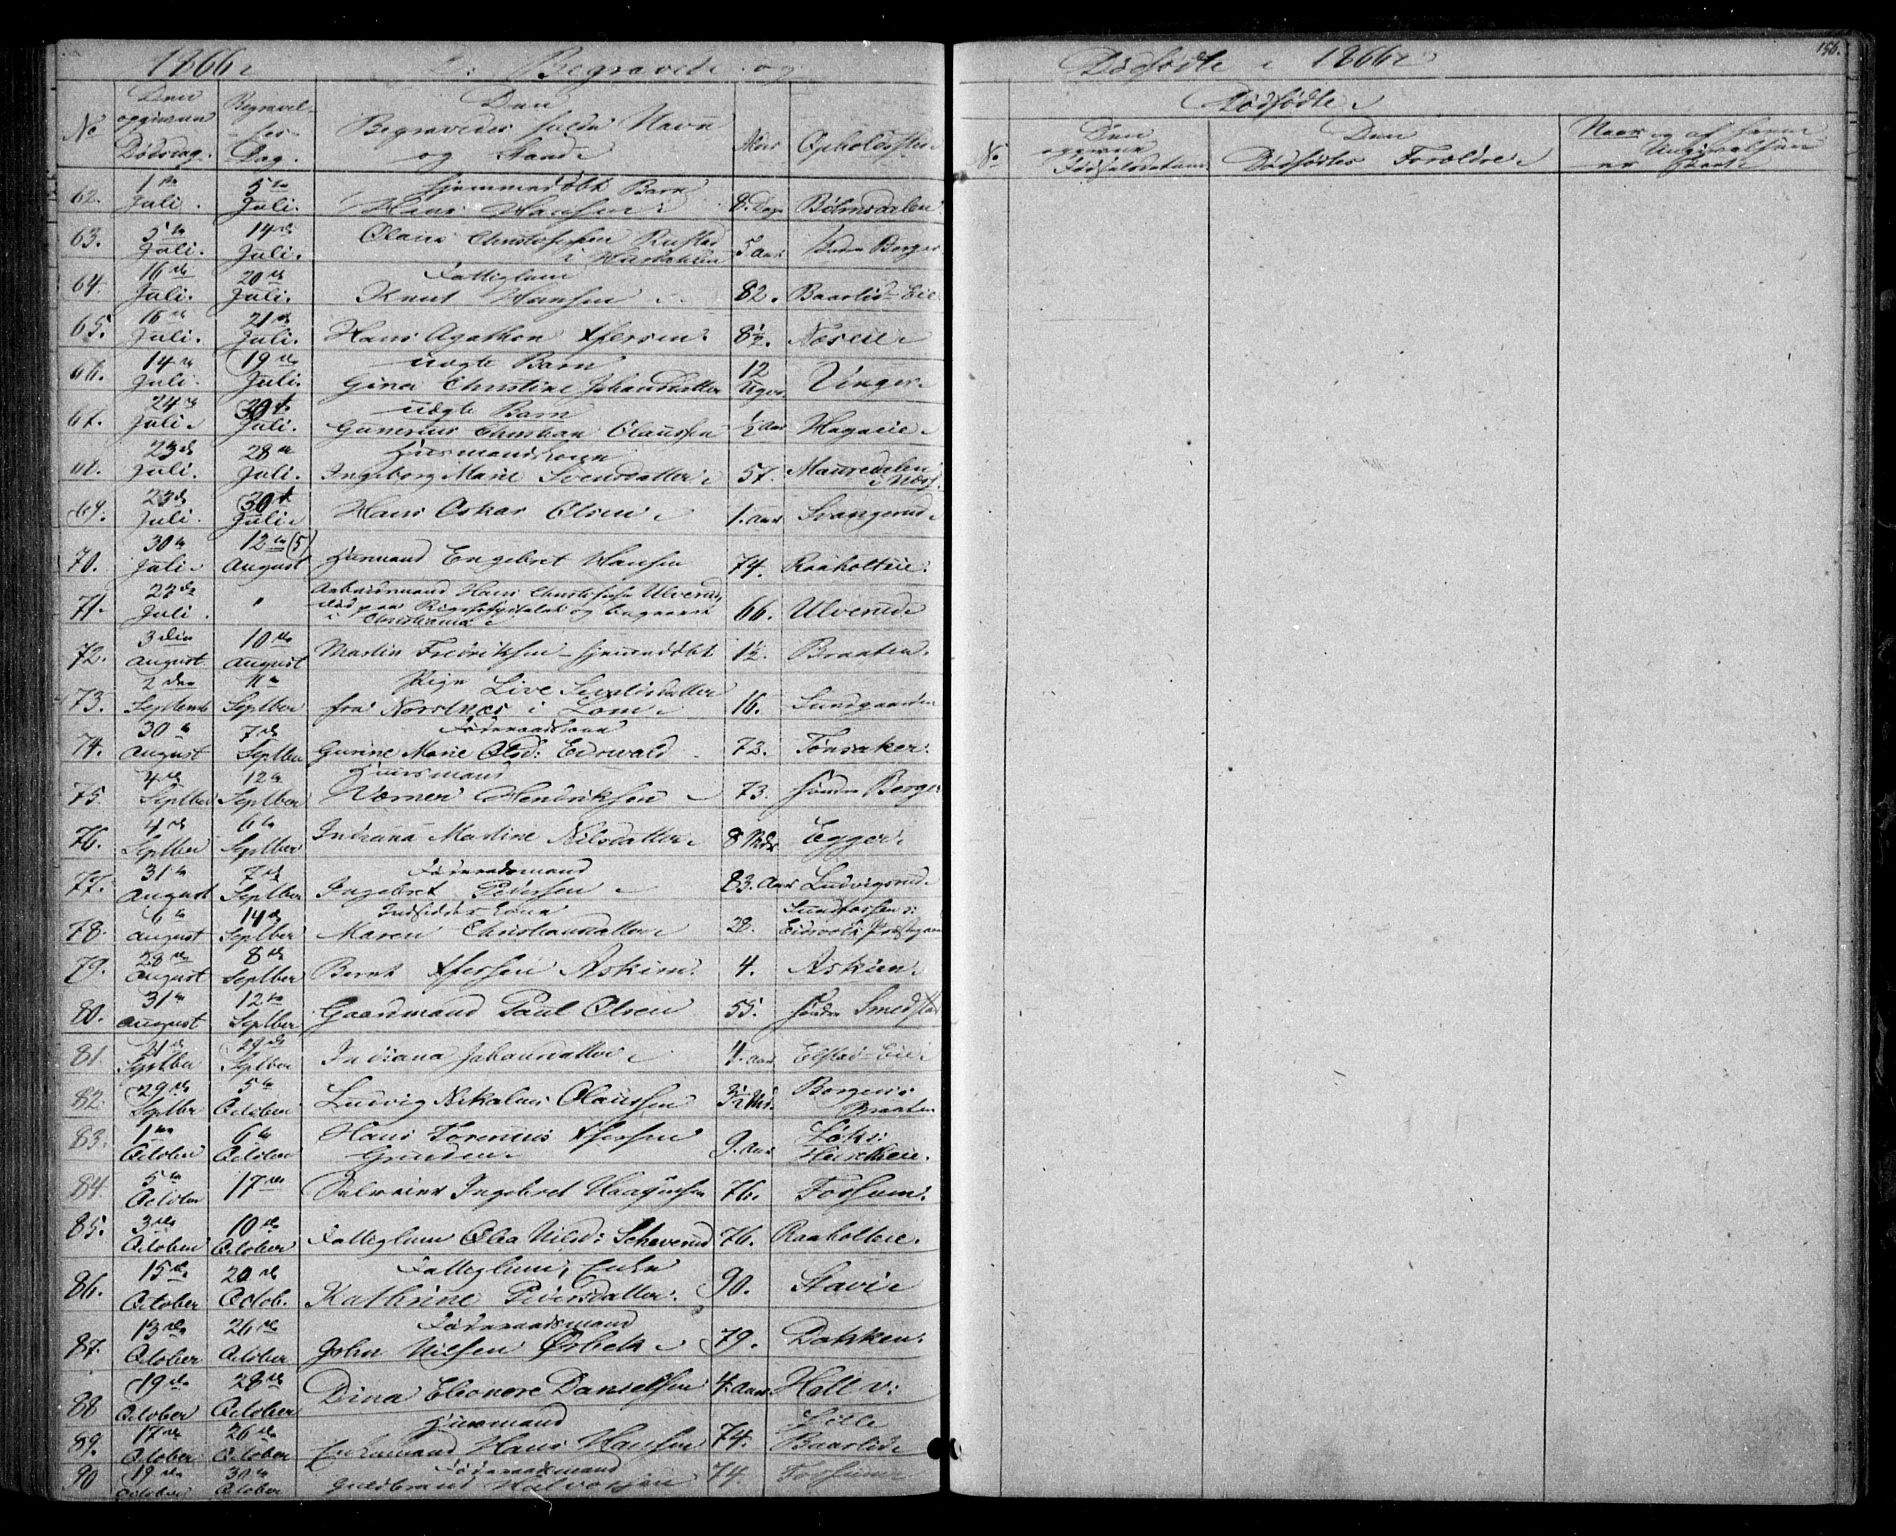 1866
Begravede og
No
Den opgivne Dødsdag.
Begravelses Dag.
Den Begravedes fulde Navn og Stand
Alder
Opholdssted
62. 1ste Juli. 5te Juli. Hjemmedøbt Barn
Hans Hansen 8. Dage
63. 5te Juli. 14de Juli. Olaus Christophersen Rustad
5 Aar Berger
64. 16de Juli. 20de Juli. Fattiglem
Knut Hansen 82. Baarlid Eie
65. 16de Juli. 21de Juli. Hans Agathon 8½. Næseie
66. 14de Juli. 19de Juli. uægte Barn
Gina Christine Johansdatter 12 Uger Vinger
67. 24de Juli. 30te Juli. uægte Barn
Gunerius Christian Olaussen ½ Aar Hagaeie
68. 23de Juli. 28de Juli. Huusmandskone
Ingeborg Marie Svendsdatter 57.
69. 23de Juli. 30te Juli. Hans Oskar Olsen 1. Aar Svangerud
70. 30te Juli. 12te (5) August Huusmand Engebret Hansen 74. Raaholteie
71. 23de Juli. " Arbeidsmand Hans Christophersen Ulverud,
død paa Rigshospitalet og begravet
i Christiania 66. Ulverud
72. 3die August 10de August Martin Fredriksen hjemmedøbt 1½. Braaten
73. 2den September 11te Septber Pige Live Siverdsdatter
fra Norstnes i Lom 16. Sundgaarden
74. 30te August 7de Septber Føderaadskone
Gurine Marie Olsd: Eidsvold 72. Tønsaker
75. 4de Septber 12te Septber Huusmand
Verner Hendriksen 73. Søndre Berger
76. 4de Septber 6te Septber Indiana Martine Nilsdatter 8 Mdr Egger
77. 31te August 7de Septber Føderaadsmand
Ingebret Pedersen 83. Aar Ludvigsrud
78. 6te August 14de Septber Indsidderkone
Maren Christiansdatter 28. Sundfossen
Eidsvolds Præstegjeld
79. 28de August 8de Septber Bernt Askim 4. Askim
80. 31te August 12te Septber Gaardmand Paul Olsen 55. Søndre Smedstad
81. 21de Septber 29de Septber Indiana Johansdatter 4. Aar Elstad Eie
82. 29de Septber 5te October Ludvig Nikolai Olaussen 3½ Borgens
Braaten
83. 1ste October 6te October Hans
Grinden 9. Aar
84. 5te October 17de Ingebret Haagensen 76. Fossum
85. 3die October 10de October Fattiglem Olea Nilsd: Scheverud 76. Raaholteie
86. 15de October 20de Octob. Fattiglem, Enke
Kathrine Pedersdatter 90. Stavi
87. 13de October 26de October Føderaadsmand
John Nilsen Ørbek 79. Bakken
88 19de October 28de October Dina Eleonore Danielsen 4. Aar
89. 17de October 26de October Huusmand
Enkemand Hans Hansen 74. Lille
Baarlid
90 19de October 30te October Føderaadsmand
Guldbrand Halvorsen 74. Fossum
Dødfødte i 1866
156.
Dødfødte
No.
Den opgivne Fødselsdatum
Den Dødfødtes Forældre
Naar og af hvem Undersøgelsen er skeet